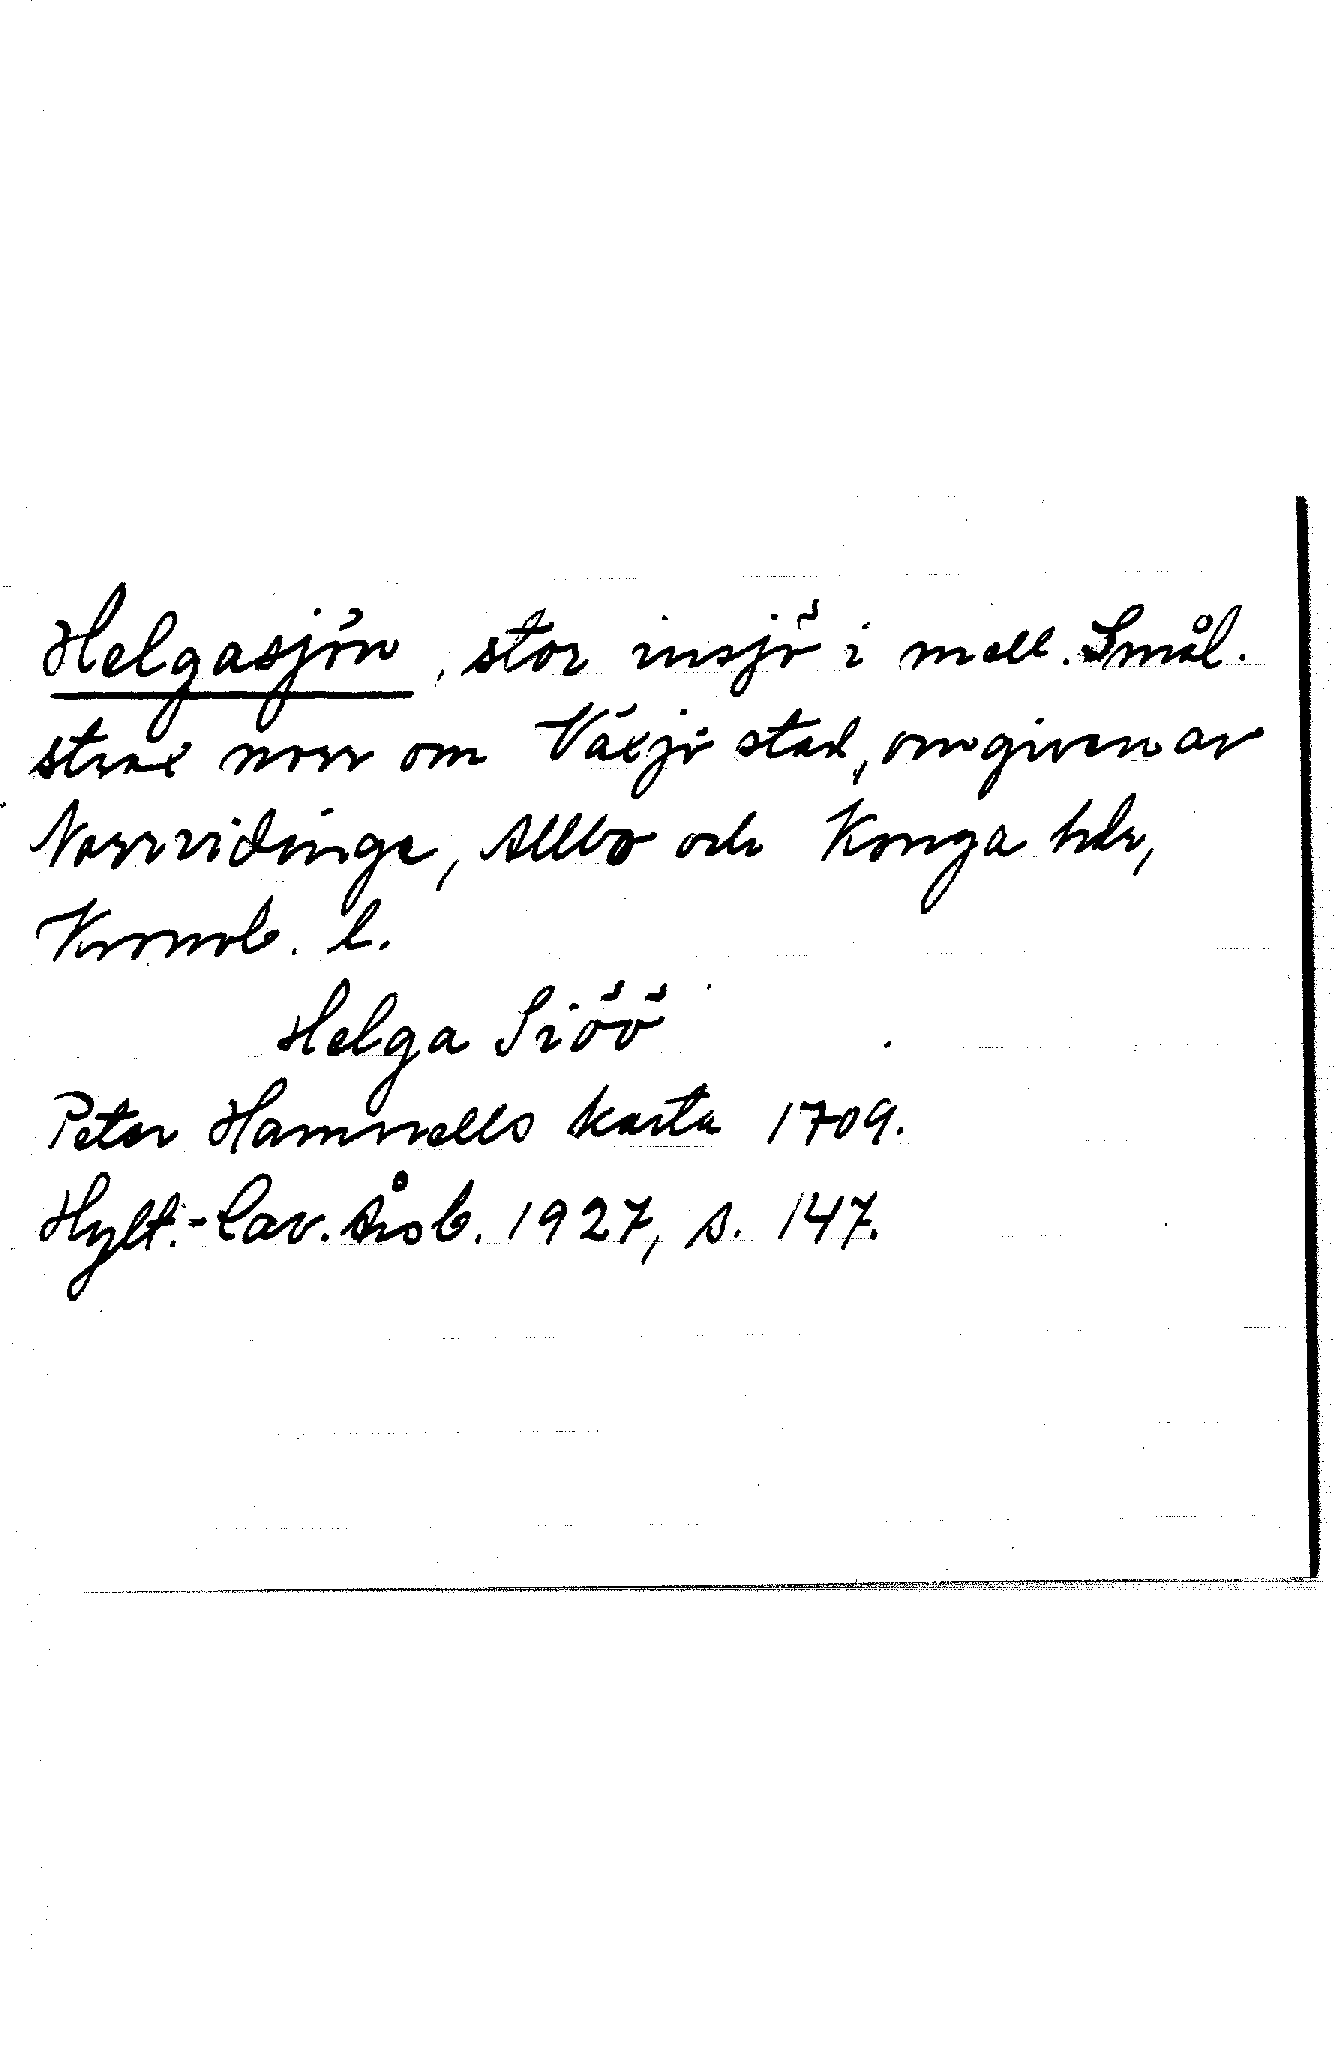 Helgasjön, stor insjö i mell. Smål.
strax norr om Växjö stad, omgiven av
Norrvidinge, Allbo och Konga hdr,
Kronob. l.
Helga Siöö
Peter Hamnells karta 1709.
Hylt.-Cav. Årsb. 1927, s. 147.